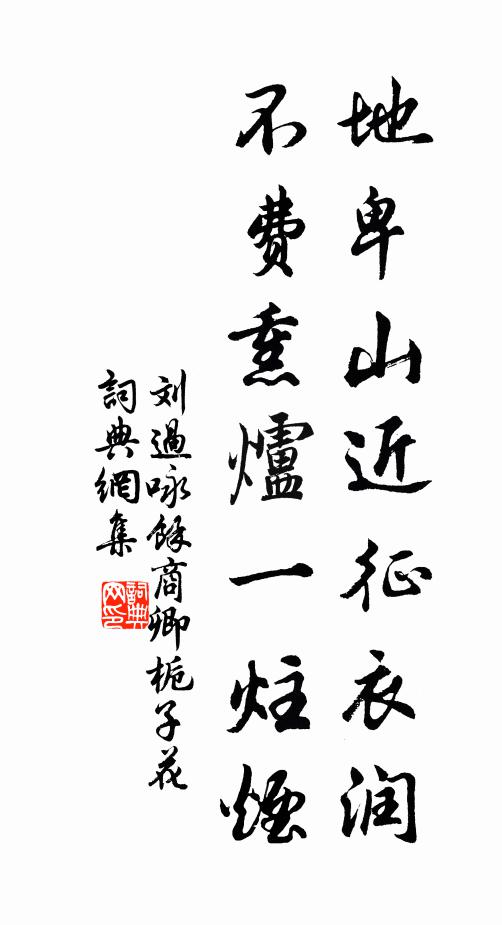 地卑山近征衣润
不费熏爐一炷煙
刘過咏餘商卿栀子花
詞典網集
詞典
网印